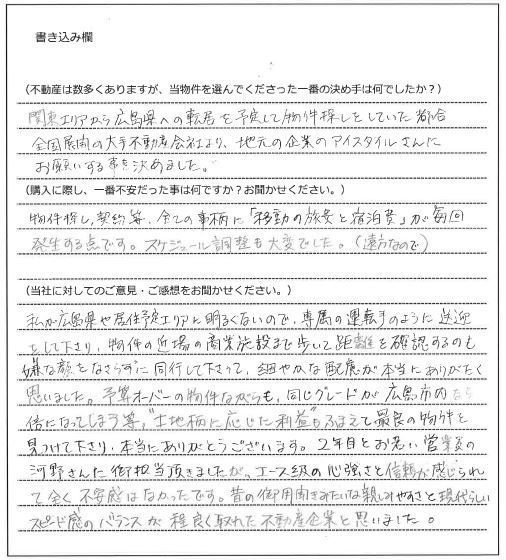 書き込み欄
(不動産は数多くありますが、当物件を選んでくださった一番の決め手は何でしたか?)
関東エリアから広島県への転居を予定して物件探しをしていた都合
全国展開の大手不動産会社より、地元の企業のアイスタイルさんに
お願いする事を決めました。
(購入に際し、一番不安だった事は何ですか?お聞かせください。)
物件探し、契約等、全ての事柄に「移動の旅費と宿泊費」が毎回
発生する点です。スケジュール調整も大変でした。(遠方なので)
(当社に対してのご意見・ご感想をお聞かせください。)
私が広島県や居住予定エリアに明るくないので、専属の運転手のように送迎
をして下り、物件の近場の商業施設まで歩いて距離を確認するのも
嫌な顔をなさらずに同行して下さって、細やかな配慮が本当にありがたく
思いました。予算オーバーの物件ながらも、同じグレードが広島市内なら
倍になってしまう等、"土地柄に応じた利益"もふまえて最良の物件を
見つけて下さり、本当にありがとうございます。2年目とお若い営業員の
河野さんに御担当頂きましたが、エース級の心強さと信頼が感じられ
て全く不安感はなかったです。昔の御用聞きみたいな親しみやすさと現代らしい
スピード感のバランスが程良く取れた不動産企業と思いました。